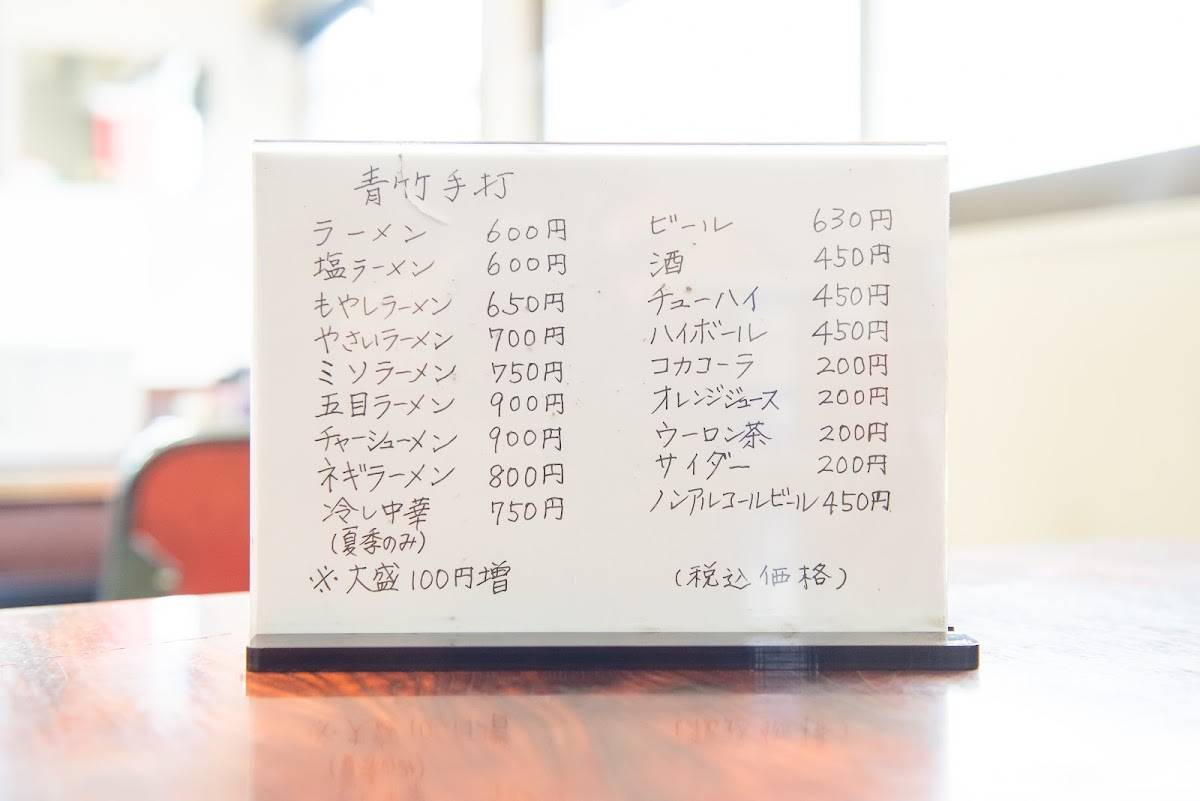 青竹手打
ラーメン 600円
塩ラーメン 600円
もやしラーメン 650円
やさいラーメン 700円
ミソラーメン 750円
五目ラーメン 900円
チャーシューメン 900円
ネギラーメン 800円
冷し中華 750円
(夏季のみ)
※大盛100円増
ビール 630円
酒 450円
チューハイ 450円
ハイボール 450円
コカコーラ 200円
オレンジジュース 200円
ウーロン茶 200円
サイダー 200円
ノンアルコールビール 450円
(税込価格)